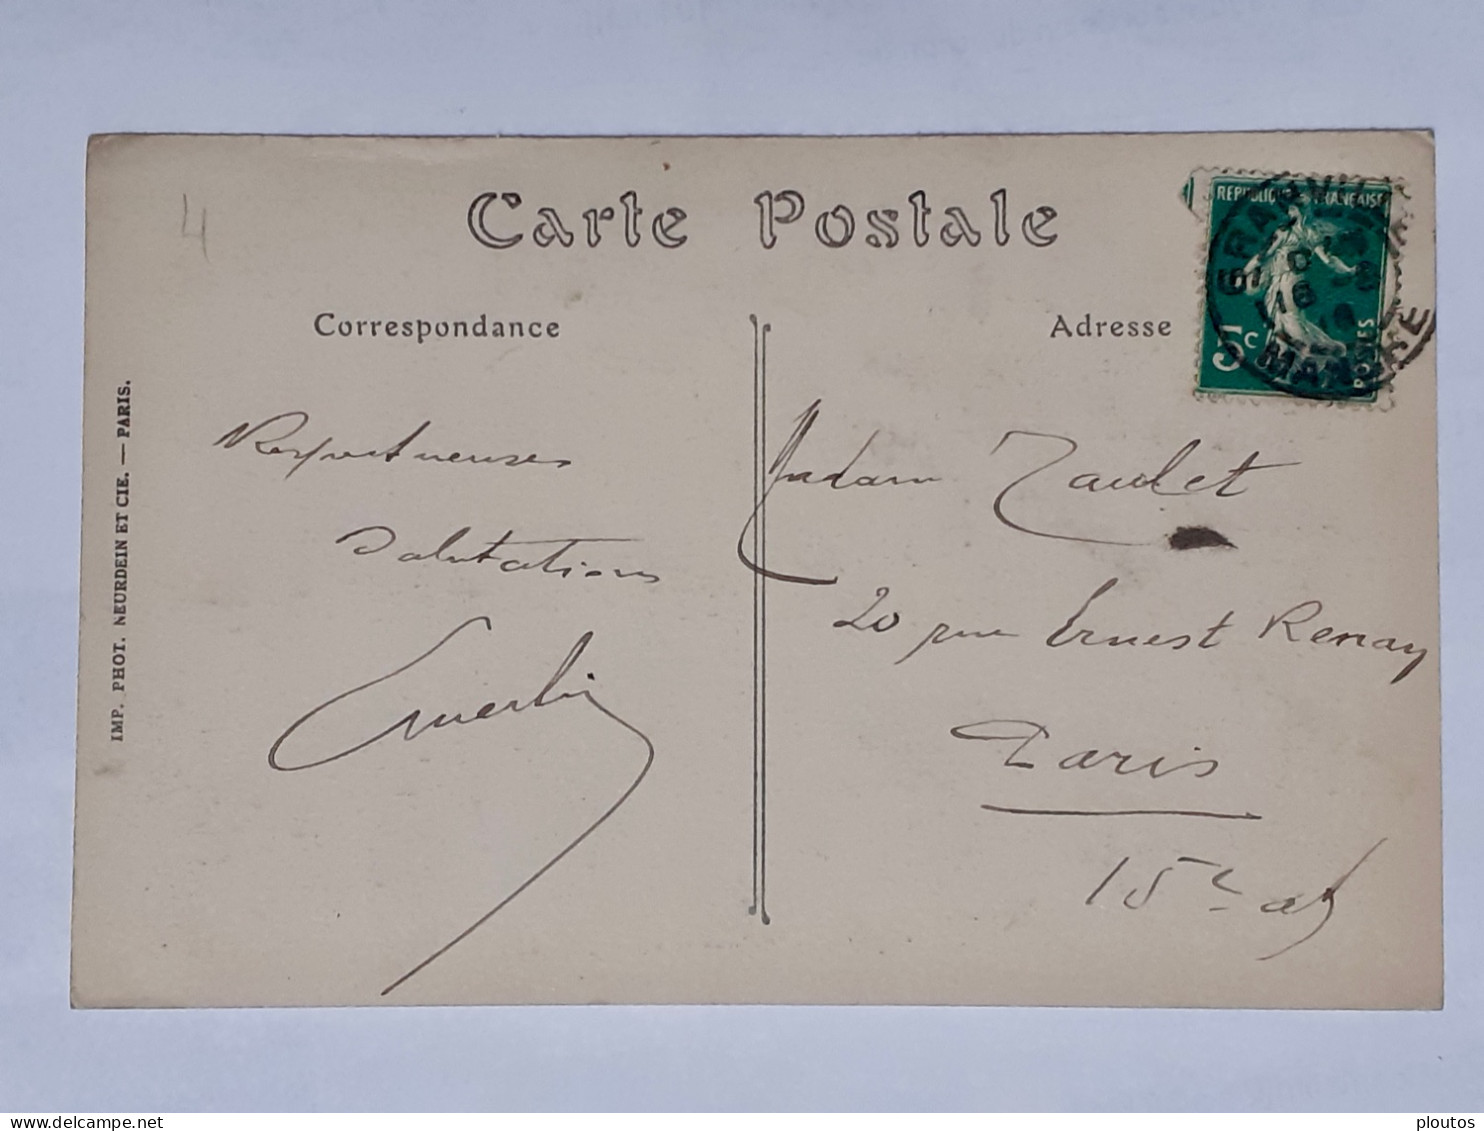 4
Carte Postale
Correspondance
Adresse
IMP. PHOT. NEURDEIN ET CIE. — PARIS.
REPUBLIQUE FRANÇAISE
5c
POSTES
GRANVILLE
MANCHE
Respectueuses
Salutations
Madame Taulet
20 rue Ernest Renay
Paris
15e
ploutos
delcampe.net